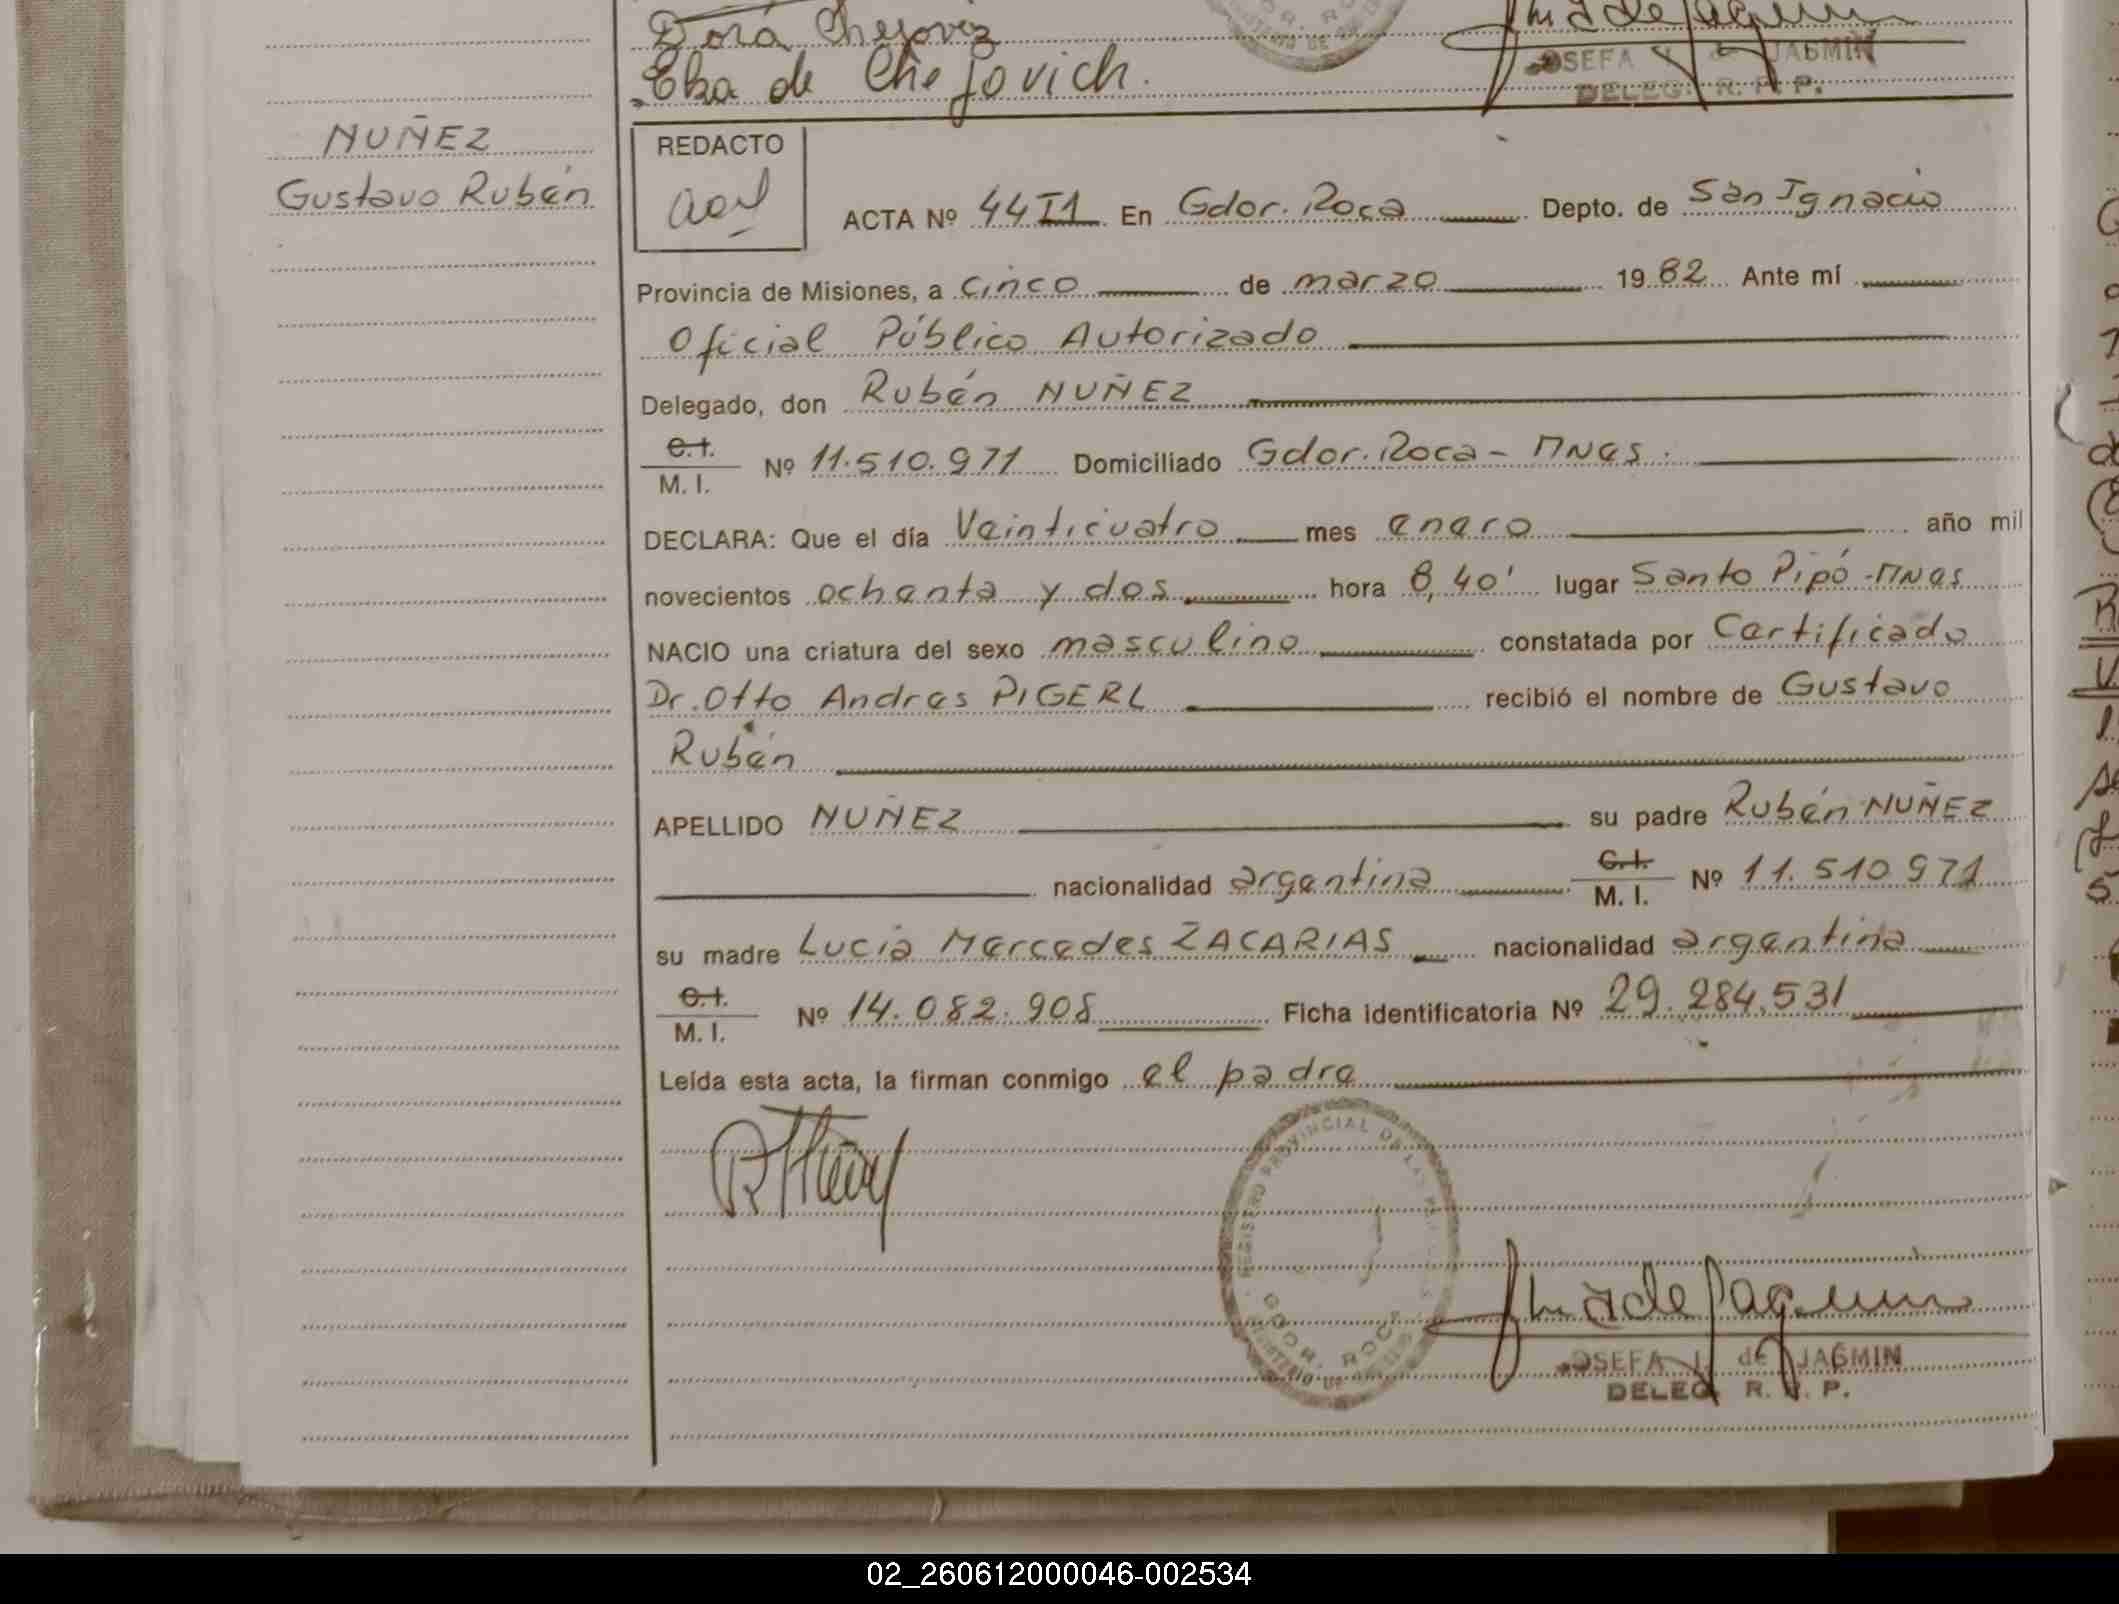 Dora Chejovez
Elsa de Chejovich.
JOSEFA J. de JAGMIN
DELEG. R. P. P.
NUÑEZ
Gustavo Rubén
REDACTO
ACTA Nº 44 T1 En Gdor. Roca Depto. de San Ignacio
Provincia de Misiones, a cinco de marzo 1982 Ante mí
Oficial Público Autorizado
Delegado, don Rubén NUÑEZ
C.I.
M. I. Nº 11.510.971 Domiciliado Gdor. Roca - Mnes.
DECLARA: Que el día Veinticuatro mes enero año mil
novecientos ochenta y dos hora 8,40' lugar Santo Pipó - Mnes
NACIO una criatura del sexo masculino constatada por Certificado
Dr. Otto Andres PIGERL recibió el nombre de Gustavo
Rubén
APELLIDO NUÑEZ su padre Rubén NUÑEZ
nacionalidad argentina C.I. M. I. Nº 11.510.971
su madre Lucia Mercedes ZACARIAS nacionalidad argentina
C.I.
M. I. Nº 14.082.908 Ficha identificatoria Nº 29.284.531
Leída esta acta, la firman conmigo el padre
REGISTRO PROVINCIAL DE LAS
GDOR. ROCA
JOSEFA J. de JAGMIN
DELEG. R. P. P.
02_260612000046-002534